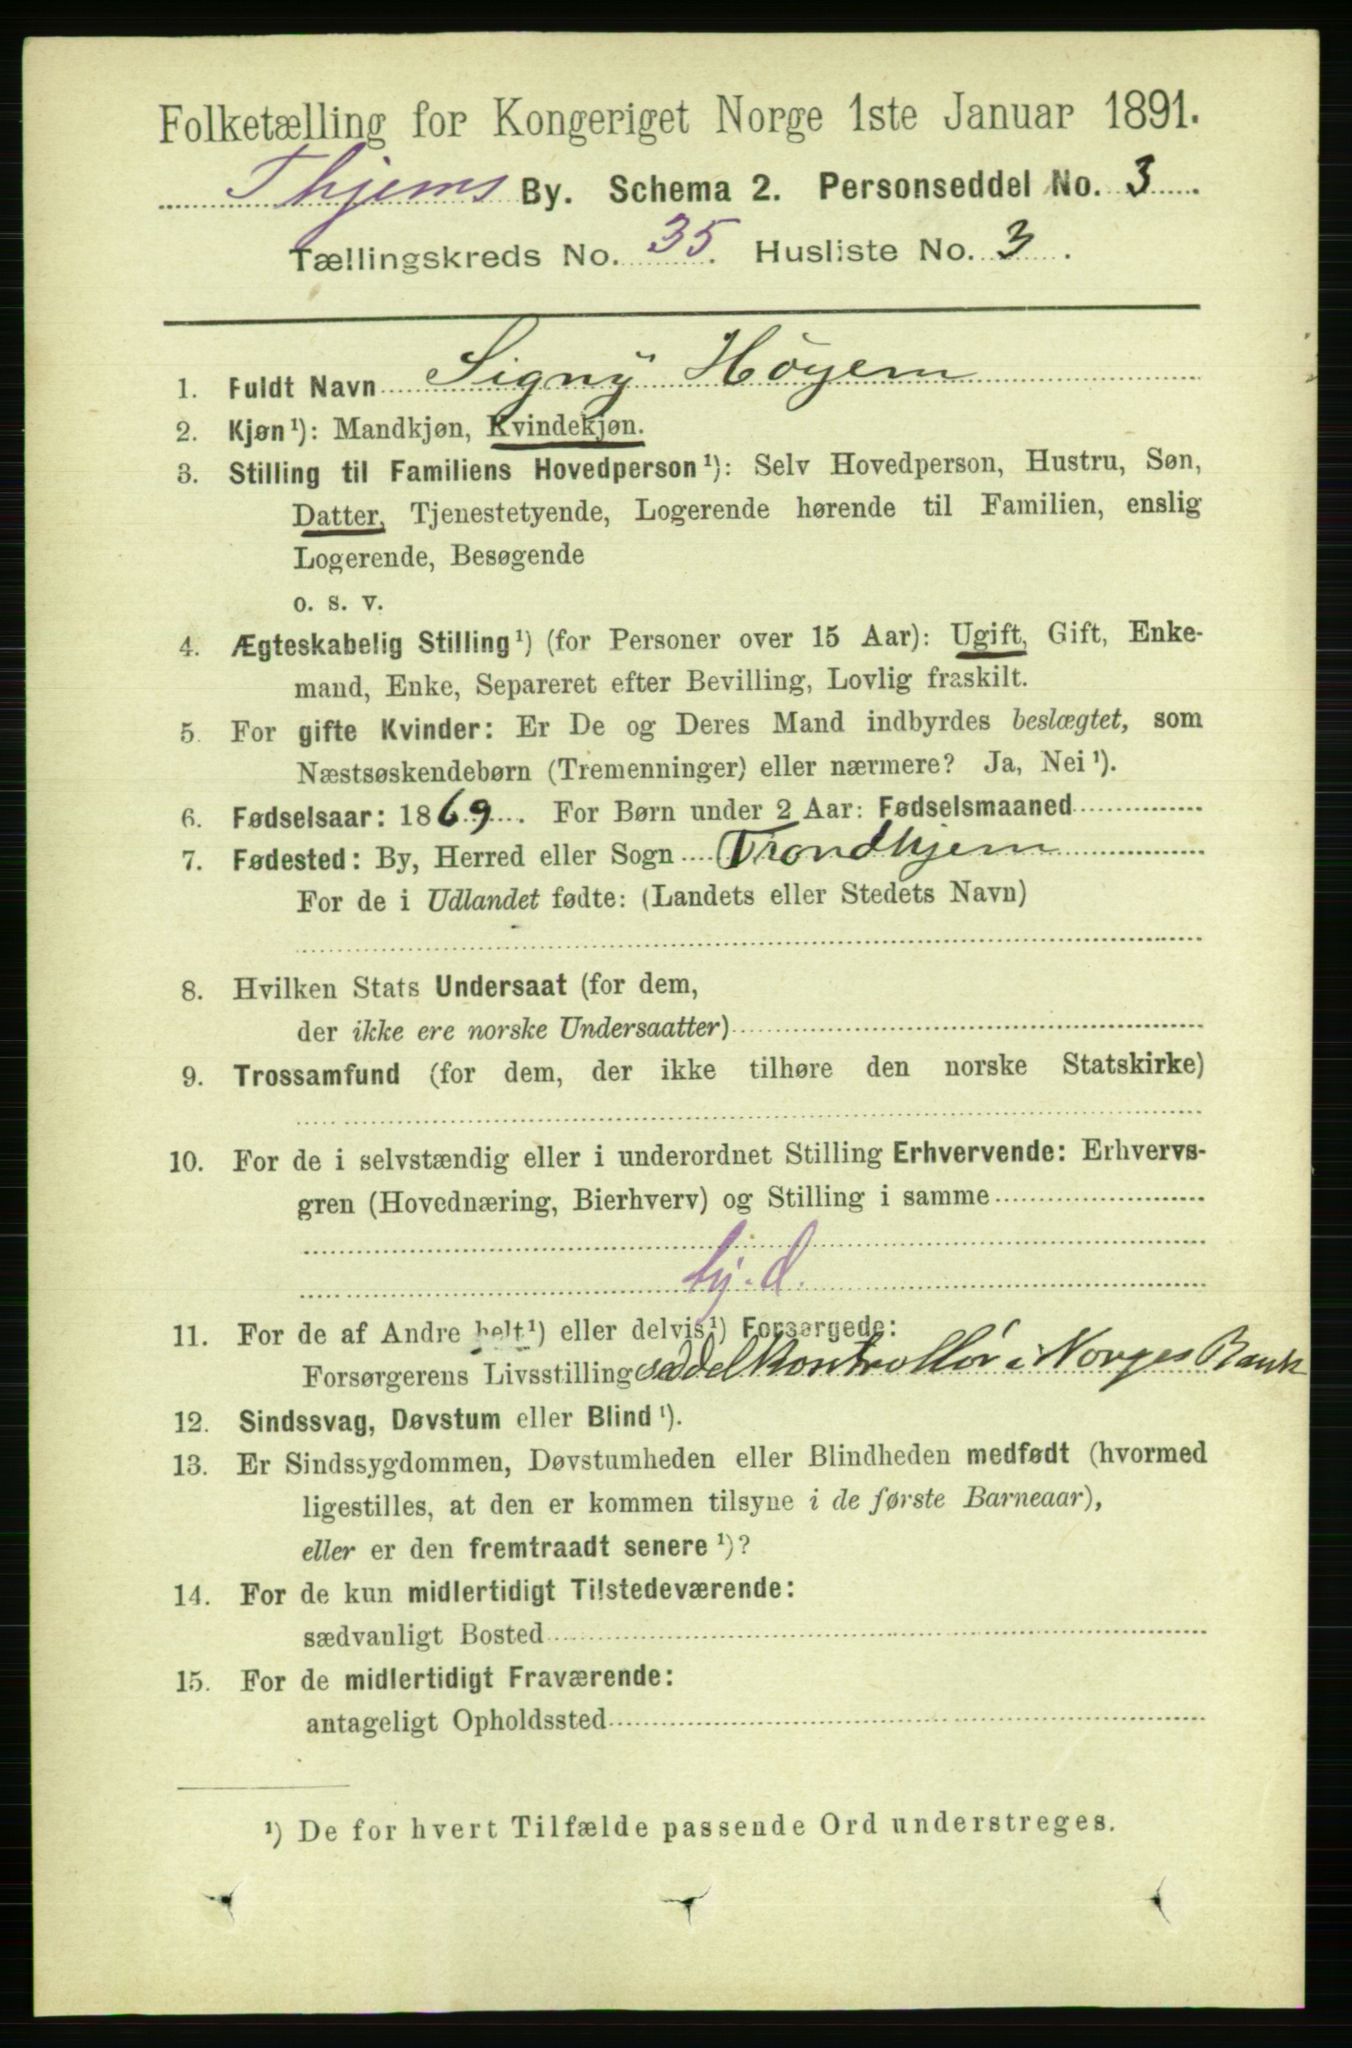 Folketælling for Kongeriget Norge 1ste Januar 1891.
Thjems By. Schema 2. Personseddel No. 3
Tællingskreds No. 35. Husliste No. 3.
1. Fuldt Navn Signy Höyem
2. Kjøn¹): Mandkjøn, Kvindekjøn.
3. Stilling til Familiens Hovedperson¹): Selv Hovedperson, Hustru, Søn,
Datter, Tjenestetyende, Logerende hørende til Familien, enslig
Logerende, Besøgende
o. s. v.
4. Ægteskabelig Stilling¹) (for Personer over 15 Aar): Ugift, Gift, Enke-
mand, Enke, Separeret efter Bevilling, Lovlig fraskilt.
5. For gifte Kvinder: Er De og Deres Mand indbyrdes beslægtet, som
Næstsøskendebørn (Tremenninger) eller nærmere? Ja, Nei¹).
6. Fødselsaar: 1869. For Børn under 2 Aar: Fødselsmaaned
7. Fødested: By, Herred eller Sogn Trondhjem
For de i Udlandet fødte: (Landets eller Stedets Navn)
8. Hvilken Stats Undersaat (for dem,
der ikke ere norske Undersaatter)
9. Trossamfund (for dem, der ikke tilhøre den norske Statskirke)
10. For de i selvstændig eller i underordnet Stilling Erhvervende: Erhvervs-
gren (Hovednæring, Bierhverv) og Stilling i samme
hj. d.
11. For de af Andre helt¹) eller delvis¹) Forsørgede:
Forsørgerens Livsstilling seddelkontrollör i Norges Bank
12. Sindssvag, Døvstum eller Blind¹).
13. Er Sindssygdommen, Døvstumheden eller Blindheden medfødt (hvormed
ligestilles, at den er kommen tilsyne i de første Barneaar),
eller er den fremtraadt senere¹)?
14. For de kun midlertidigt Tilstedeværende:
sædvanligt Bosted
15. For de midlertidigt Fraværende:
antageligt Opholdssted
¹) De for hvert Tilfælde passende Ord understreges.